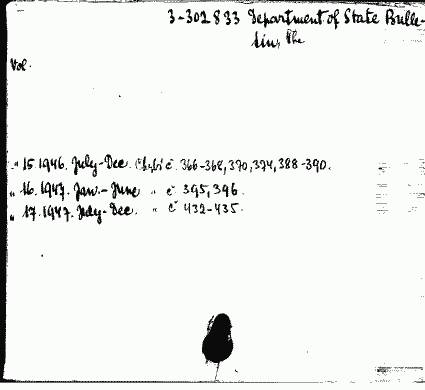 3-302833 Department of State Bulle-
tin, The
Vol.
" 15. 1946. July-Dec. č. 366-368, 370, 374, 388-390.
" 16. 1947. Jan.-June " č 395, 396.
" 17. 1947. July-Dec. " č 432-435.